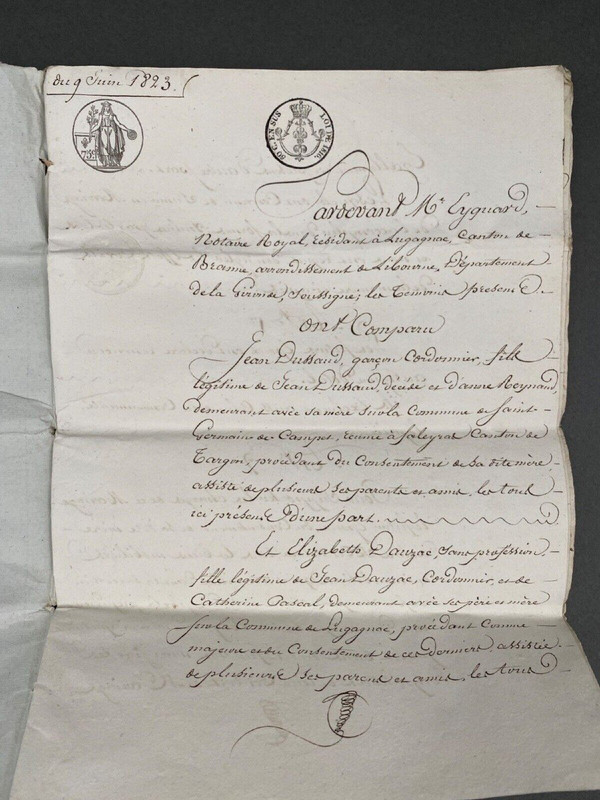 du 9 Juin 1823.
75c
50 C. EN SUS
LOI DE 1816
Pardevant Me. Eyquard,
Notaire Royal, résidant à Lugagnac, Canton de
Branne, arrondissement de Libourne, Département
de la Gironde, soussigné; les Temoins présens
ont Comparu
Jean Dussaud, garçon Cordonnier, fils
légitime de Jean Dussaud, décédé et d'anne Reynaud,
demeurant avec sa mère sur la Commune de Saint-
Germain de Campet, réunie à faleyras Canton de
Targon, procédant du Consentement de sa dite mère
assisté de plusieurs ses parents et amis, les tous
ici présens d'une part.
Et Elizabeth Dauzac, sans profession,
fille légitime de Jean Dauzac, Cordonnier, et de
Catherine Pascal, demeurant avec ses père et mère
sur la Commune de Lugagnac, procédant Comme
majeure et du Consentement de ces derniers assistée
de plusieurs ses parens et amis, les tous